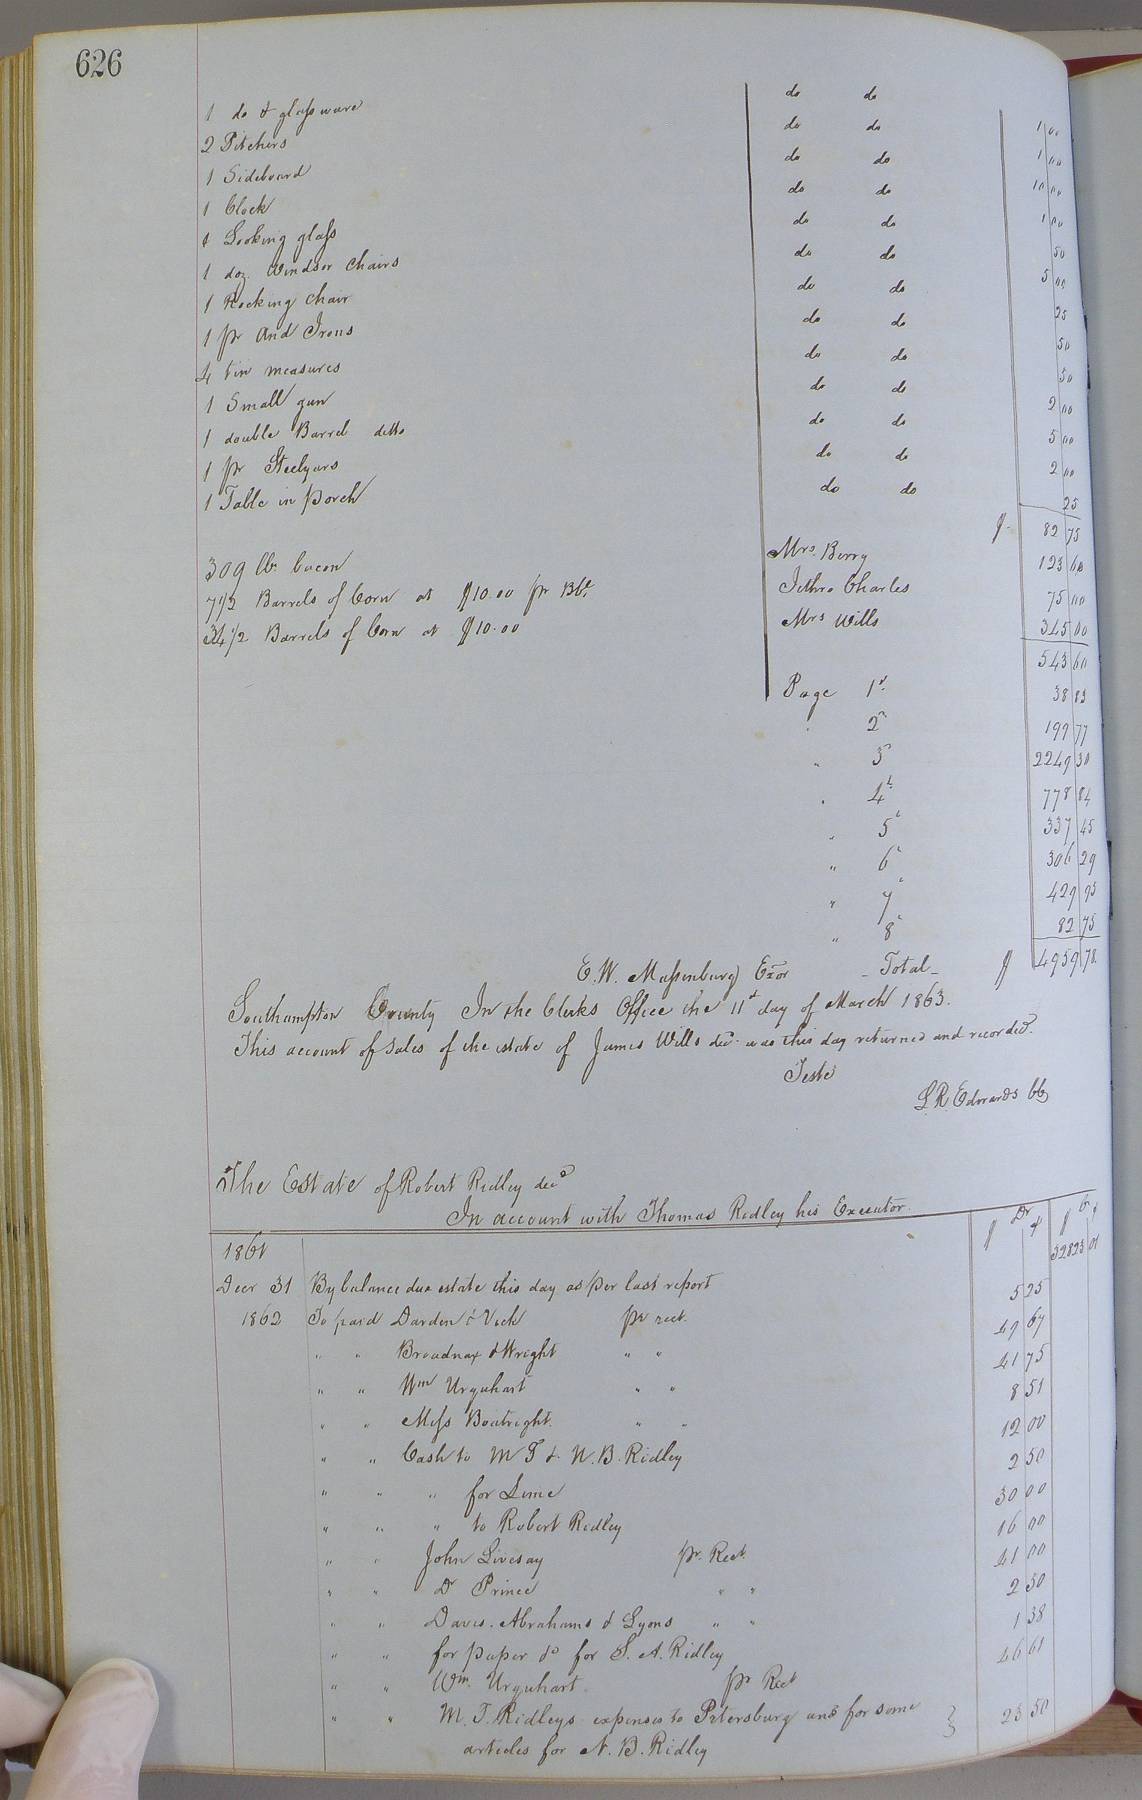 626
1 do & glass ware do do 1 00
2 Pitchers do do 1 00
1 Sideboard do do 10 00
1 Clock do do 1 00
1 Looking glass do do 50
1 doz. Windsor Chairs do do 5 00
1 Rocking Chair do do 25
1 pr And Irons do do 50
4 tin measures do do 50
1 Small gun do do 2 00
1 double Barrel ditto do do 5 00
1 pr Steelyars do do 2 00
1 Table in Porch do do 25
$ 82 75
309 lbs bacon Mrs. Berry 123 60
7 1/2 Barrels of Corn at $10.00 pr Bbl. Jethro Charles 75 00
34 1/2 Barrels of Corn at $10.00 Mrs Wills 345 00
543 60
Page 1st 38 83
" 2 77
" 3 2249 30
" 4 778 84
" 5 337 45
" 6 306 29
" 7 429 95
" 8 82 75
E. W. Massenburg Exor Total $ 4959 78
Southampton County In the Clerks Office the 11th day of March 1863.
This account of Sales of the estate of James Wills decd. was this day returned and recorded.
Teste
L. R. Edwards CC
The Estate of Robert Ridley decd
In account with Thomas Ridley his Executor.
$ Dr ¢ $ Cr ¢
1861
Decr 31 By balance due estate this day as per last report 32823 01
1862 To paid Darden & Vick pr rect. 5 25
" " Broadnax & Wright " " 49 67
" " Wm Urquhart " " 41 75
" " Miss Boatright " " 8 51
" " Cash to M T & N. B. Ridley 12 00
" " " for Lime 2 50
" " " to Robert Ridley 30 00
" " John Livesay pr. Rect. 16 00
" " Dr Prince " " 41 00
" " Davis. Abrahams & Lyons " " 2 50
" " for paper &c for S. A. Ridley 1 38
" " Wm. Urquhart pr Rect 46 61
" " M. T. Ridleys expenses to Petersburg and for some
articles for N. B. Ridley 23 50